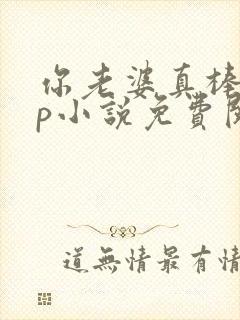 你老婆真棒
p小說免費閱
道無情最有情